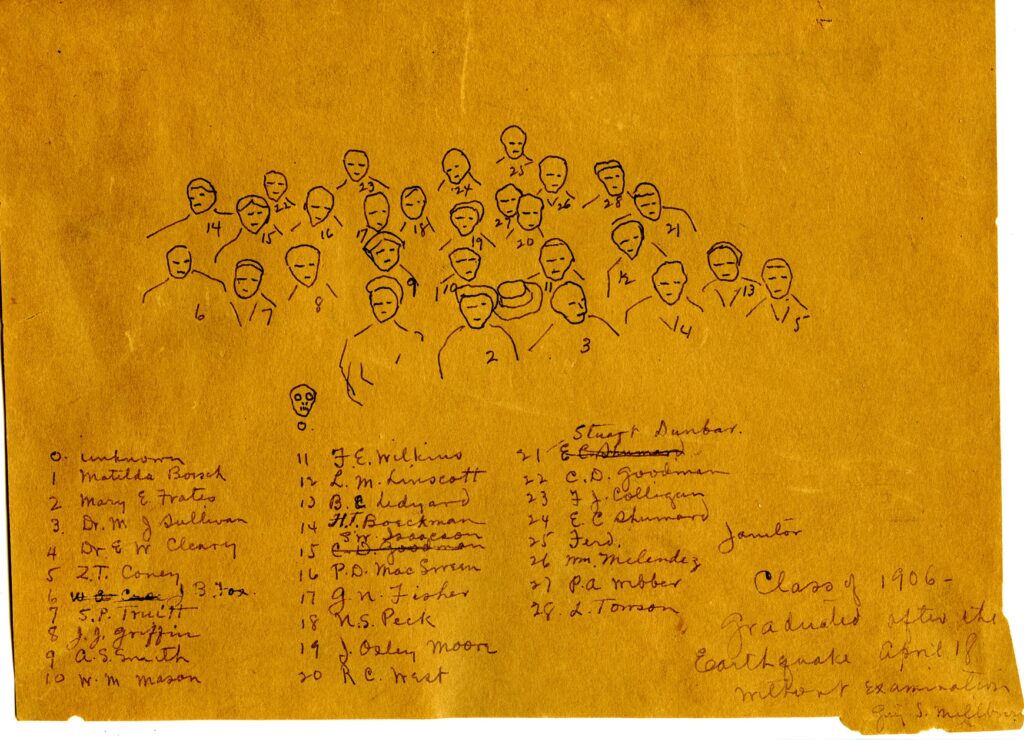 25
23
24
22
26
28
14
15
16
17
18
27
19
20
21
6
7
8
9
10
11
12
13
5
1
2
3
14
0.
0. unknown
1 Matilda Boesch
2 Mary E. Frates
3. Dr. M J Sullivan
4 Dr E W Cleary
5 Z.T. Coney
6 J B. Fox.
7 S.P. Truitt
8 J.J. Griffin
9 A.S. Smith
10 W.M Mason
11 F.E. Wilkins
12 L.M. Linscott
13 B.E Ledyard
14 H.T. Boeckman
S.W. Isaacson
15 C.D. Goodman
16 P.D. Mac Sween
17 G.N. Fisher
18 N.S. Peck
19 J. Oxley Moore
20 R C. West
Stuart Dunbar.
21 E C Shumard
22 C.D. Goodman
23 F J. Collogan
24 E.C Shumard
25 Ferd. Janitor
26 Wm. Melendez
27 P.A Webber
28. L. Towson
Class of 1906-
Graduated after the
Earthquake April 18
without examination
Guy S.